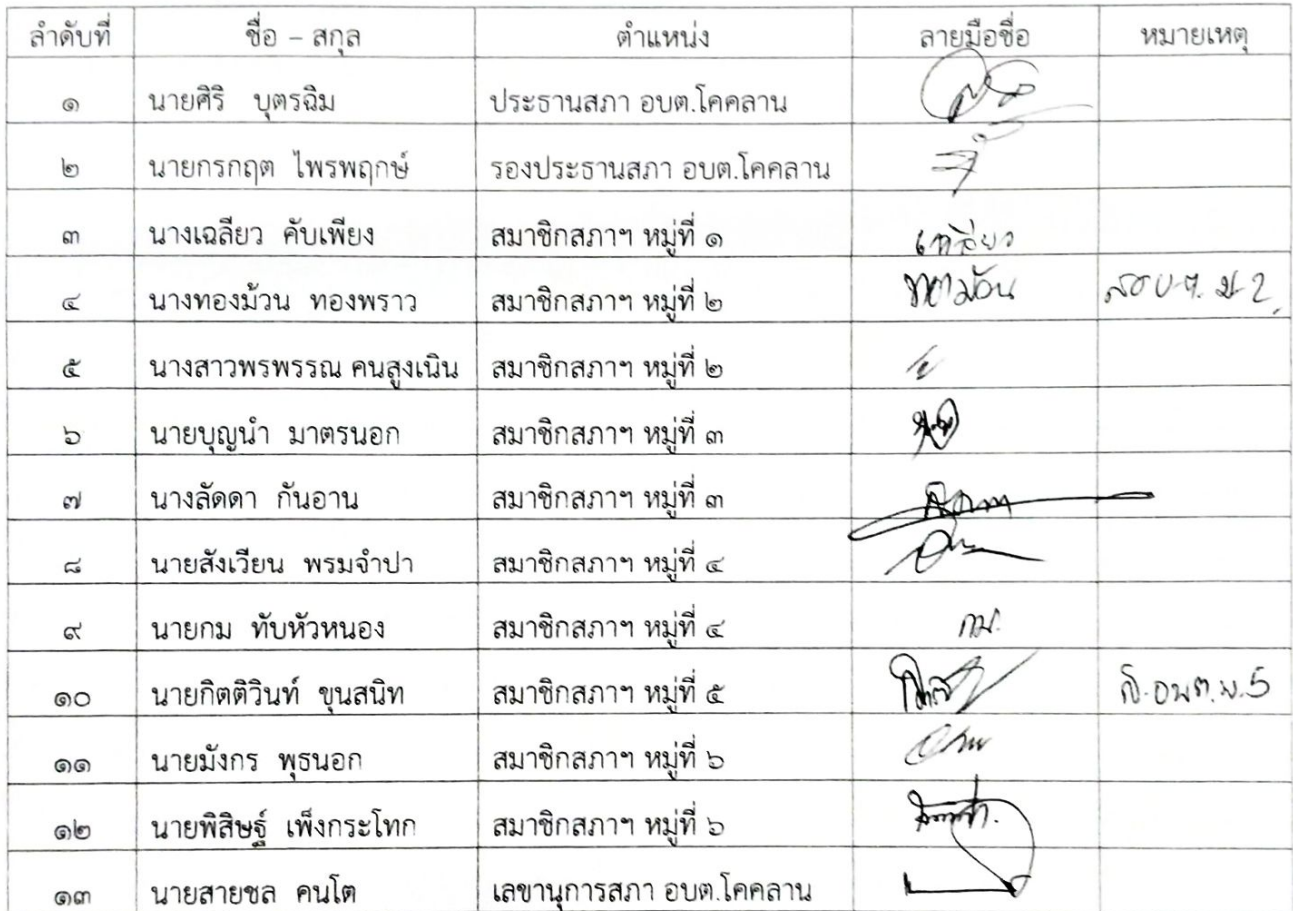 ลำดับที่ ชื่อ – สกุล ตำแหน่ง ลายมือชื่อ หมายเหตุ
๑ นายศิริ บุตรฉิม ประธานสภา อบต.โคคลาน
๒ นายกรกฤต ไพรพฤกษ์ รองประธานสภา อบต.โคคลาน
๓ นางเฉลียว คับเพียง สมาชิกสภาฯ หมู่ที่ ๑ เฉลียว
๔ นางทองม้วน ทองพราว สมาชิกสภาฯ หมู่ที่ ๒ ทองม้วน
๕ นางสาวพรพรรณ คนสูงเนิน สมาชิกสภาฯ หมู่ที่ ๒
๖ นายบุญนำ มาตรนอก สมาชิกสภาฯ หมู่ที่ ๓
๗ นางลัดดา กันอาน สมาชิกสภาฯ หมู่ที่ ๓
๘ นายสังเวียน พรมจำปา สมาชิกสภาฯ หมู่ที่ ๔
๙ นายกม ทับหัวหนอง สมาชิกสภาฯ หมู่ที่ ๔ กม.
๑๐ นายกิตติวินท์ ขุนสนิท สมาชิกสภาฯ หมู่ที่ ๕ ส.อบต.ม.5
๑๑ นายมังกร พุธนอก สมาชิกสภาฯ หมู่ที่ ๖
๑๒ นายพิสิษฐ์ เพ็งกระโทก สมาชิกสภาฯ หมู่ที่ ๖
๑๓ นายสายชล คนโต เลขานุการสภา อบต.โคคลาน